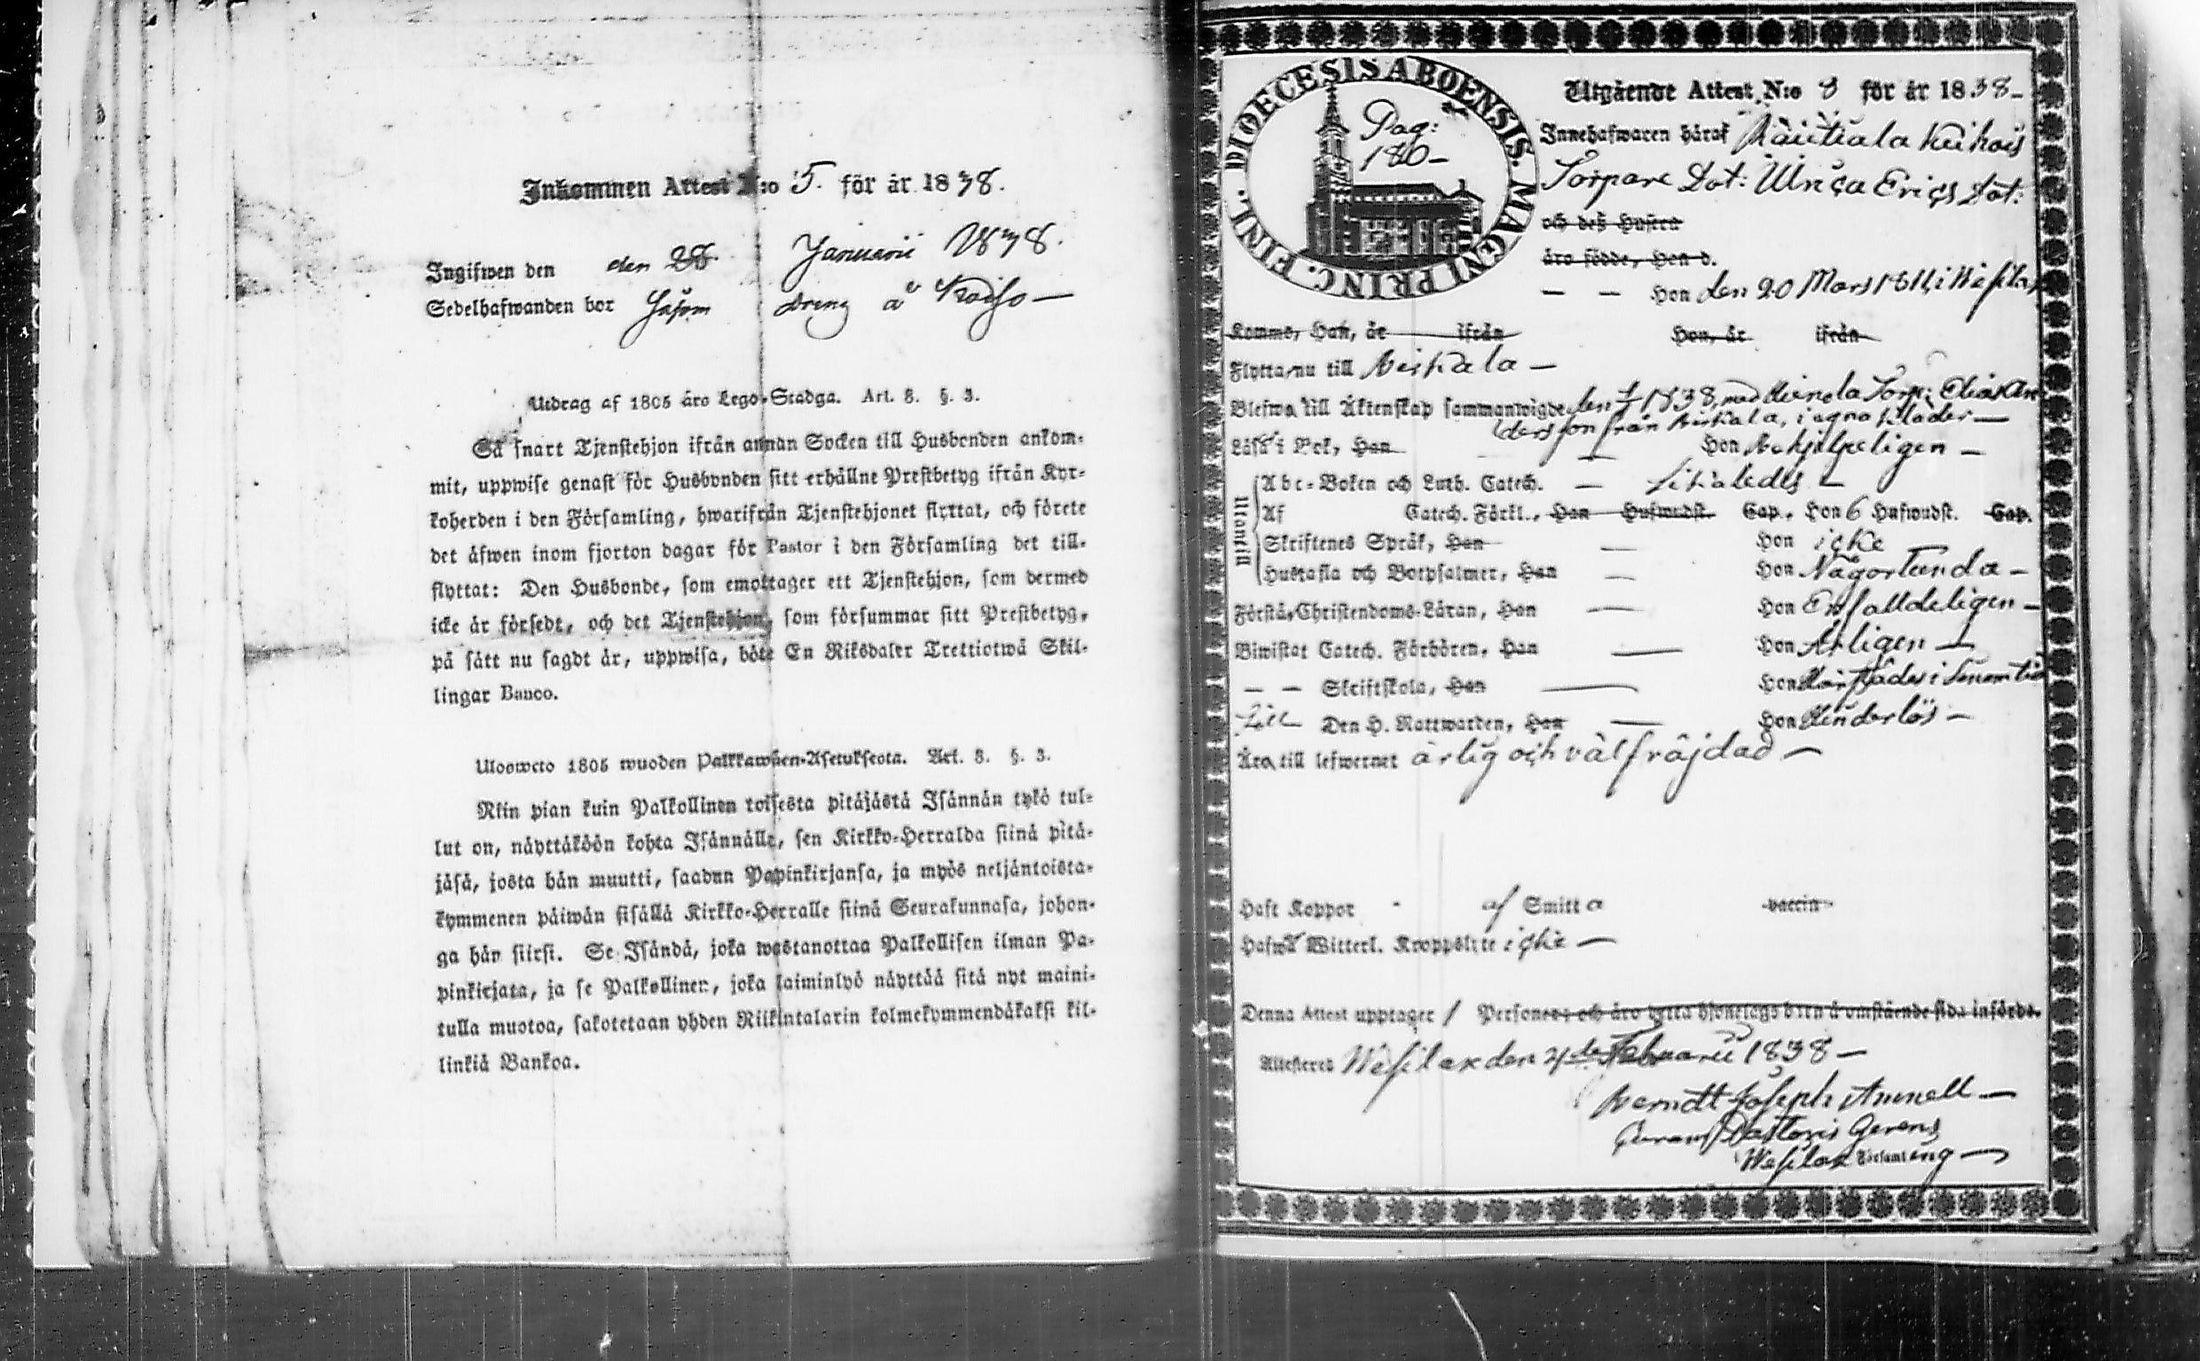 Inkommen Attest N:o 5. för år 1838.
Ingifwen den den 28. Januarii 1838.
Sedelhafwanden bor Såsom dreng å Koiso —
Utdrag af 1805 års Lego-Stadga. Art. 3. §. 3.
Så snart Tjenstehjon ifrån annan Socken till Husbonden ankom-
mit, uppwise genast för Husbonden sitt erhållne Prestbetyg ifrån Kyr-
koherden i den Församling, hwarifrån Tjenstehjonet flyttat, och förete
det äfwen inom fjorton dagar för Pastor i den Församling det till-
flyttat: Den Husbonde, som emottager ett Tjenstehjon, som dermed
icke är försedt, och det Tjenstehjon, som försummar sitt Prestbetyg,
på sätt nu sagdt är, uppwisa, böte En Riksdaler Trettiotwå Skil-
lingar Banco.
Ulosweto 1805 wuoden Palkkawäen-Asetuksesta. Art. 3. §. 3.
Niin pian kuin Palkollinen toisesta pitäjästä Isännän tykö tul-
lut on, näyttäköön kohta Isännälle, sen Kirkko-Herralda siinä pitä-
jäsä, josta hän muutti, saadun Papinkirjansa, ja myös neljäntoista-
kymmenen päiwän sisällä Kirkko-Herralle siinä Seurakunnasa, johon-
ga hän siirsi. Se Isändä, joka wastanottaa Palkollisen ilman Pa-
pinkirjata, ja se Palkollinen, joka laiminlyö näyttää sitä nyt maini-
tulla muotoa, sakotetaan yhden Riikintalarin kolmekymmendäkaksi kil-
linkiä Bankoa.
DIOECESIS ABOENSIS. MAGNI PRINC. FINL.
Pag:
180 —
Utgående Attest N:o 3 för år 1838 —
Innehafwaren häraf Rautiala Keihois
Torpare Dot: Ulrica Erics Dot:
och deß Hustru
äro födde, Hen d.
— — Hon den 20 Mars 1811, i Wesilax
Komme, Han, år ifrån Hon, år ifrån
Flytta, nu till Birkala —
Blefwo till Äktenskap sammanwigde den 1838, med Torp: Elias An
dersson från Birkala, i egna kläder —
Läsa i Bok, Han — Hon Behjelpeligen —
Utantill
Abc-Boken och Luth. Catech. — likaledes —
Af Catech. Förkl., Han Hufwudst. Cap. Hon 6 Hufwudst. Cap.
Skriftenes Språk, Han — Hon icke —
Hustafla och Botpsalmer, Han — Hon Någorlunda —
Förstå, Christendoms-Läran, Han — Hon Enfalldeligen —
Biwistat Catech. Förhören, Han — Hon Årligen —
— — Skriftskola, Han — Hon i
Till Den H. Nattwarden, Han — Hon Hinderlös —
Äro till lefwernet ärlig och välfräjdad —
Haft Koppor af Smitta vaccin
Hafwa Witterl. Kroppslyte icke —
Denna Attest upptager 1 Personer och äro detta hjonelags barn å omstående sida införde.
Attesteras Wesilax den 4de Februarii 1838 —
Berndt Joseph Annell —
Curam Pastoris Gerens
Wesilax Församling —